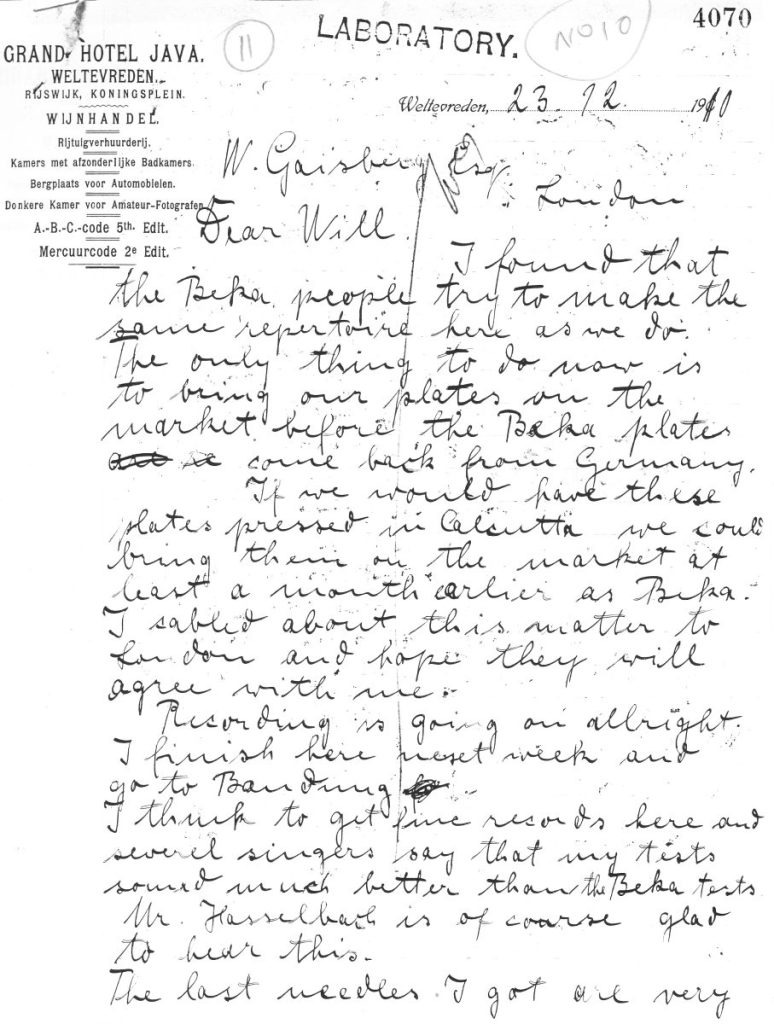 4070
LABORATORY.
11
No 10
GRAND HOTEL JAVA.
WELTEVREDEN.
RIJSWIJK, KONINGSPLEIN.
WIJNHANDEL.
Rijtuigverhuurderij.
Kamers met afzonderlijke Badkamers.
Bergplaats voor Automobielen.
Donkere Kamer voor Amateur-Fotografen
A.-B.-C.-code 5th. Edit.
Mercuurcode 2e Edit.
Weltevreden, 23. 12 1910
W. Gaisberg Esq.
London
Dear Will.
I found that
the Beka people try to make the
same repertoire here as we do.
The only thing to do now is
to bring our plates on the
market before the Beka plates
come back from Germany.
If we would have these
plates pressed in Calcutta we could
bring them on the market at
least a month earlier as Beka.
I cabled about this matter to
London and hope they will
agree with me.
Recording is going on allright.
I finish here next week and
go to Bandung
I think to get fine records here and
severel singers say that my tests
sound much better than the Beka tests
Mr. Hasselbach is of coarse glad
to hear this.
The last needles I got are very